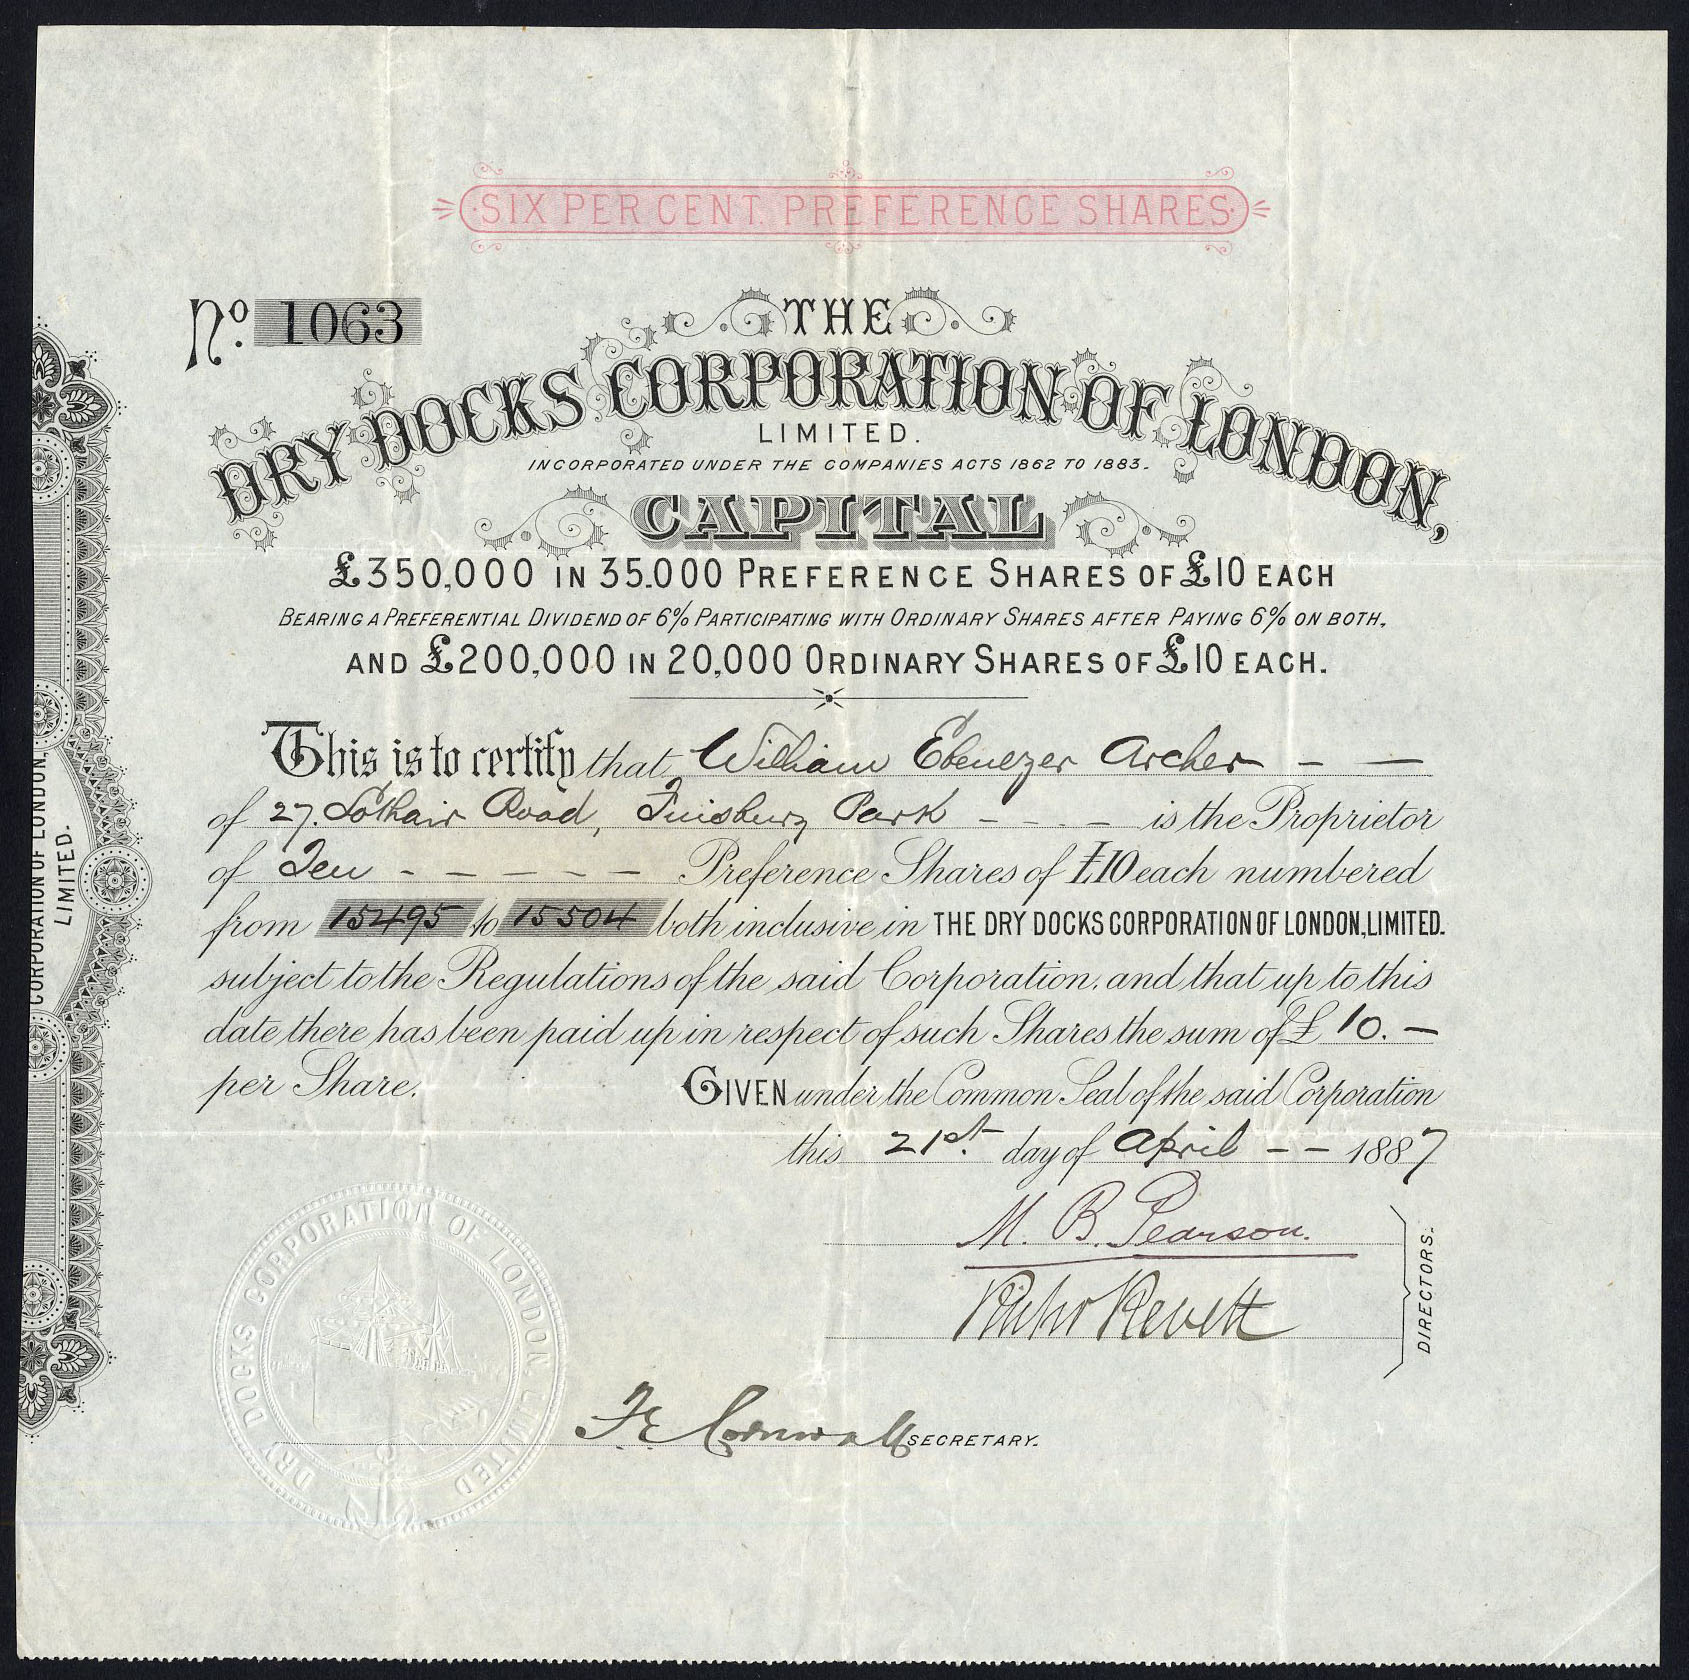 SIX PER CENT. PREFERENCE SHARES
No. 1063
THE
DRY DOCKS CORPORATION OF LONDON,
LIMITED.
INCORPORATED UNDER THE COMPANIES ACTS 1862 TO 1883.
CAPITAL
£350,000 IN 35.000 PREFERENCE SHARES OF £10 EACH
BEARING A PREFERENTIAL DIVIDEND OF 6% PARTICIPATING WITH ORDINARY SHARES AFTER PAYING 6% ON BOTH,
AND £200,000 IN 20,000 ORDINARY SHARES OF £10 EACH.
This is to certify that William Ebenezer Archer - -
of 27. Lothair Road, Finsbury Park - - - - is the Proprietor
of Ten - - - - - - Preference Shares of £10 each numbered
from 15495 to 15504 both inclusive in THE DRY DOCKS CORPORATION OF LONDON, LIMITED.
subject to the Regulations of the said Corporation, and that up to this
date there has been paid up in respect of such Shares the sum of £ 10. -
per Share. GIVEN under the Common Seal of the said Corporation
this 21st. day of April - - 1887
M. B. Pearson.
Revett
DIRECTORS.
F. E. Cornwall SECRETARY.
DRY DOCKS CORPORATION OF LONDON LIMITED
CORPORATION OF LONDON,
LIMITED.